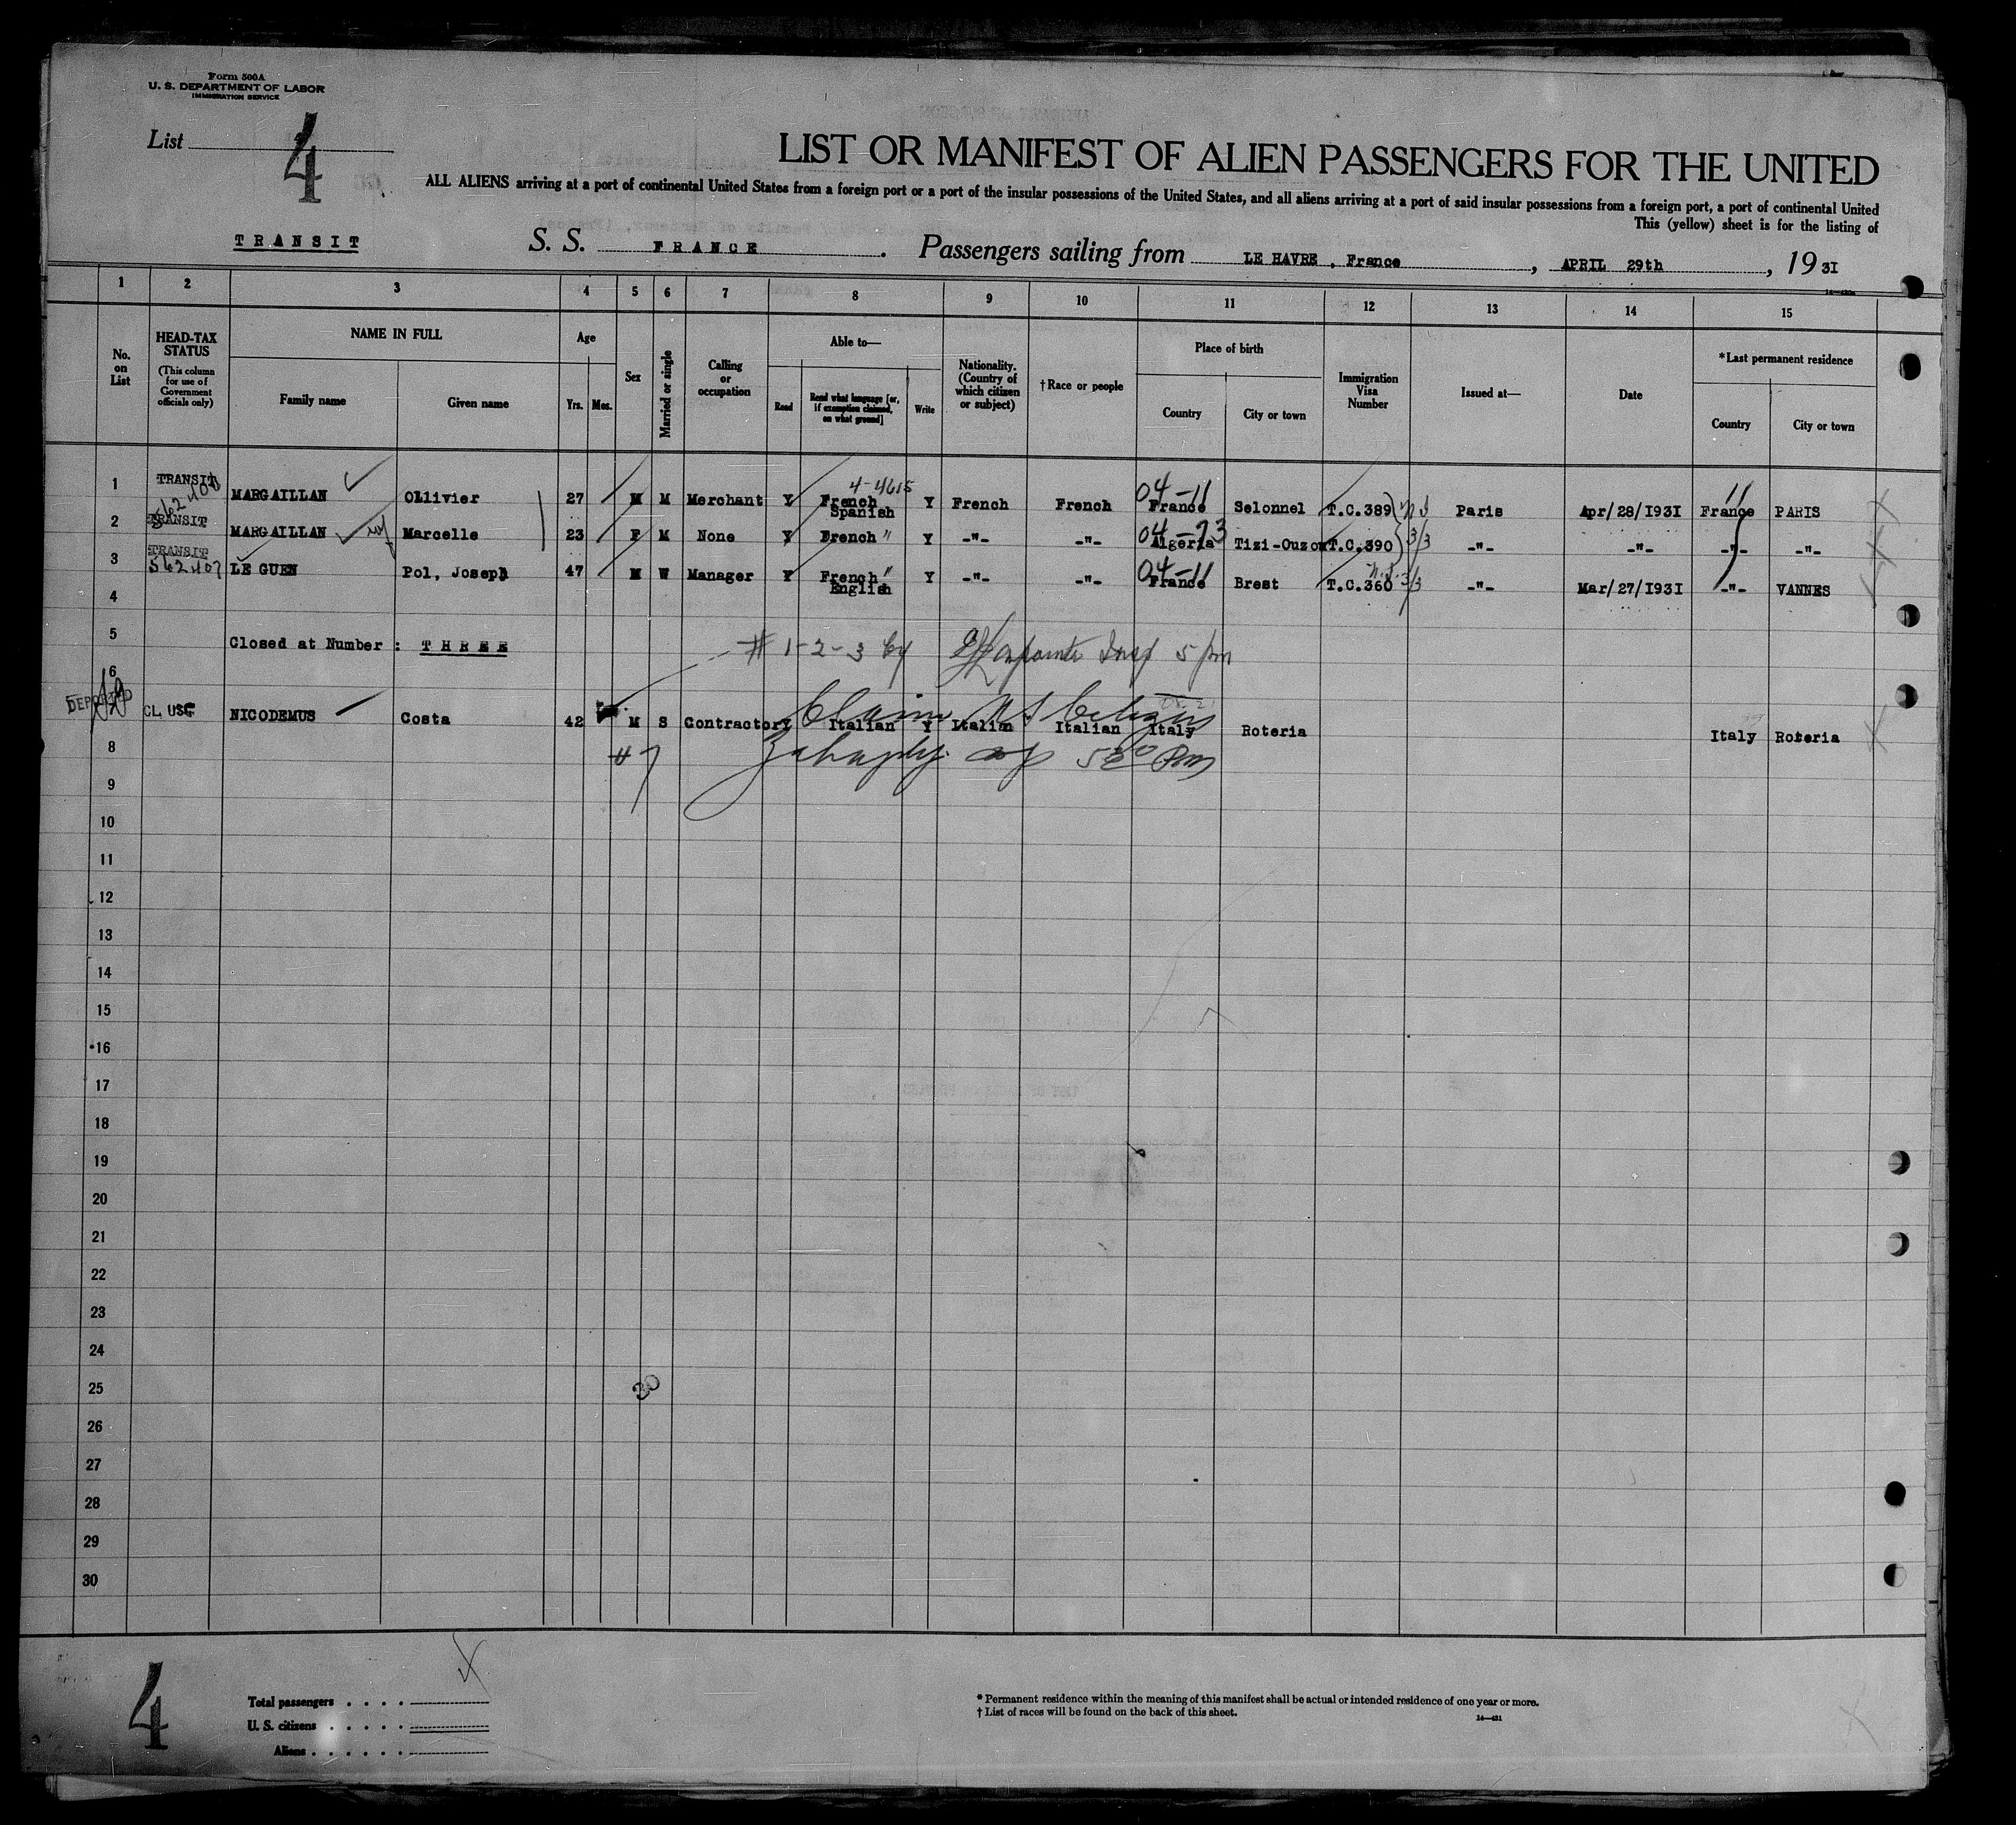 Form 500A
U. S. DEPARTMENT OF LABOR
IMMIGRATION SERVICE
List 4
LIST OR MANIFEST OF ALIEN PASSENGERS FOR THE UNITED
ALL ALIENS arriving at a port of continental United States from a foreign port or a port of the insular possessions of the United States, and all aliens arriving at a port of said insular possessions from a foreign port, a port of continental United
This (yellow) sheet is for the listing of
TRANSIT S. S. FRANCE. Passengers sailing from LE HAVRE, France, APRIL 29th, 1931
1 2 3 4 5 6 7 8 9 10 11 12 13 14 15
No. on List
HEAD-TAX STATUS
(This column for use of Government officials only)
NAME IN FULL
Family name Given name
Age
Yrs. Mos.
Sex
Married or single
Calling or occupation
Able to—
Read Read what language [or, if exemption claimed, on what ground] Write
Nationality. (Country of which citizen or subject)
†Race or people
Place of birth
Country City or town
Immigration Visa Number
Issued at—
Date
*Last permanent residence
Country City or town
1 TRANSIT MARGAILLAN Ollivier 27 M M Merchant Y French Spanish Y French French France Selonnel T.C.389 Paris Apr/28/1931 France PARIS
4-4615
04-11
11
2 TRANSIT MARGAILLAN Marcelle 23 F M None Y French " Y -"- -"- Algeria Tizi-Ouzou T.C.390 -"- -"- -"- -"-
3/3
3 TRANSIT LE GUEN Pol, Joseph 47 M W Manager Y French " English Y -"- -"- France Brest T.C.360 -"- Mar/27/1931 -"- VANNES
562407
04-11
3/3
4
5 Closed at Number : THREE
# 1-2-3 by Insp 5 pm
6
DEPORTED CL USC NICODEMUS Costa 42 M S Contractor Y Italian Y Italian Italian Italy Roteria Italy Roteria
Claims US Citizen
#7 5 30 Pm
8
9
10
11
12
13
14
15
16
17
18
19
20
21
22
23
24
25
30
26
27
28
29
30
4
Total passengers . . . .
U. S. citizens . . . . .
Aliens . . . . . .
* Permanent residence within the meaning of this manifest shall be actual or intended residence of one year or more.
† List of races will be found on the back of this sheet.
14—431